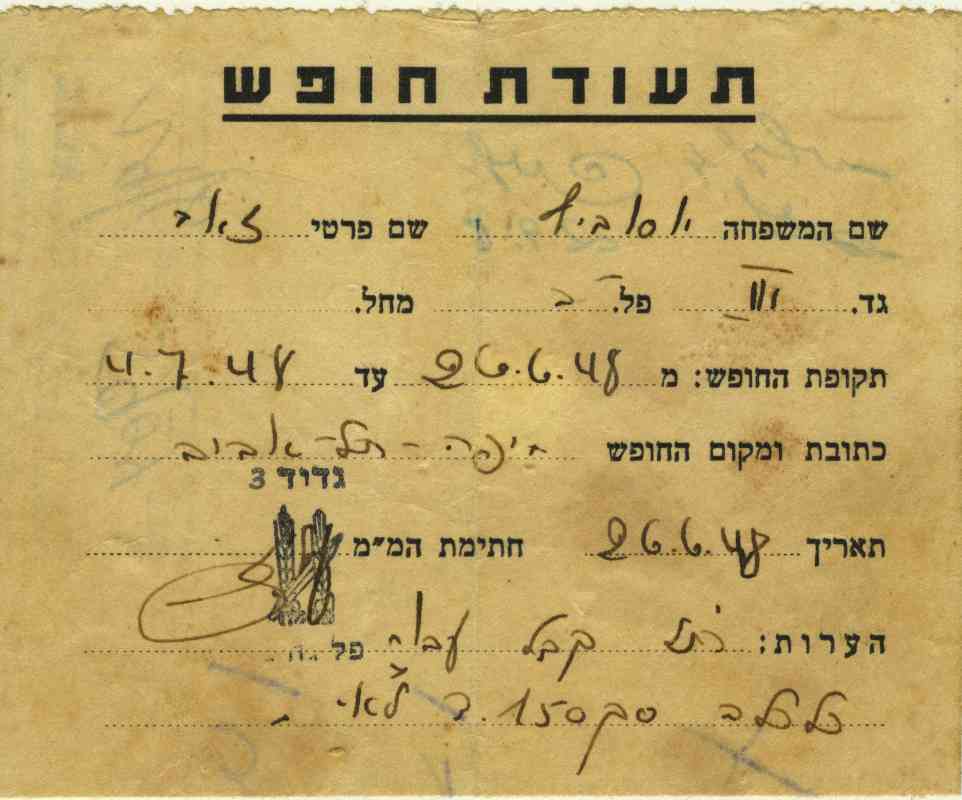 תעודת חופש
שם המשפחה יוסוביץ שם פרטי זאב
גד. III פל. ב מחל.
תקופת החופש: מ 26.6.48 עד 4.7.48
כתובת ומקום החופש חיפה - תל-אביב
גדוד 3
תאריך 26.6.48 חתימת המ"מ
הערות: הנ"ל קבל עבור פל
כלכלה סך 150.